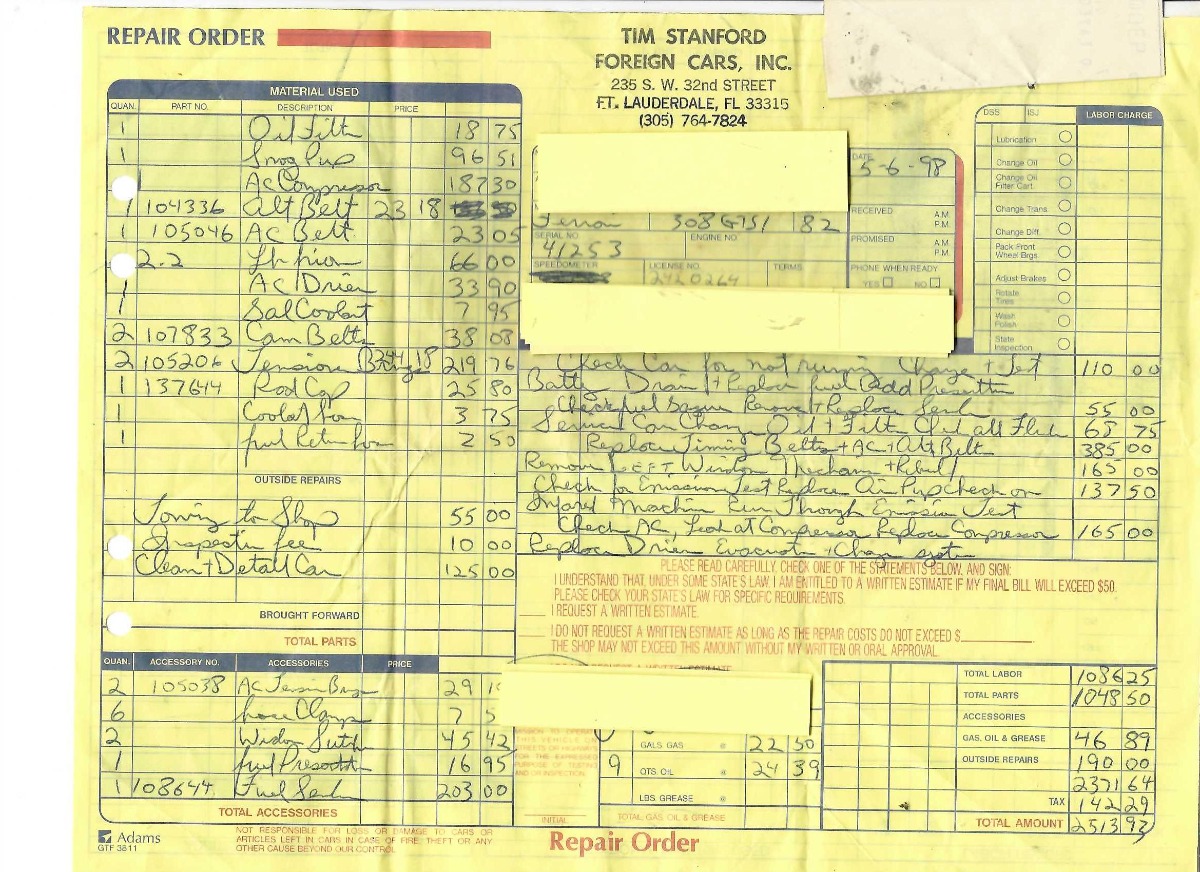 REPAIR ORDER
TIM STANFORD
FOREIGN CARS, INC.
235 S. W. 32nd STREET
FT. LAUDERDALE, FL 33315
(305) 764-7824
MATERIAL USED
QUAN. PART NO. DESCRIPTION PRICE
1 Oil Filtr 18 75
1 Smog Pup 96 51
AC Compressor 187 30
1 104336 Alt Belt 23 18
1 105046 AC Belt 23 05
2.2 66 00
1 AC Drier 33 90
1 Coolant 7 95
2 107833 Cam Belts 38 08
2 105206 Tension 219 76
1 137644 Rod Cap 25 80
1 Coolat 3 75
1 fuel Return 2 50
OUTSIDE REPAIRS
Towing to Shop 55 00
Inspectin fee 10 00
Clean + Detail Car 125 00
BROUGHT FORWARD
TOTAL PARTS
QUAN. ACCESSORY NO. ACCESSORIES PRICE
2 105038 AC 29
6 hose Clamps 7 5
2 Window 45 42
1 fuel 16 95
1 108644 Fuel 203 00
TOTAL ACCESSORIES
Adams
GTF 3811
NOT RESPONSIBLE FOR LOSS OR DAMAGE TO CARS OR
ARTICLES LEFT IN CARS IN CASE OF FIRE, THEFT OR ANY
OTHER CAUSE BEYOND OUR CONTROL.
DATE 5-6-98
308 GTSI 82
RECEIVED A.M. P.M.
SERIAL NO. 41253 ENGINE NO.
PROMISED A.M. P.M.
SPEEDOMETER LICENSE NO. TERMS
PHONE WHEN READY
YES NO
LABOR CHARGE
Lubrication
Change Oil
Change Oil
Filter Cart.
Change Trans.
Change Diff.
Pack Front
Wheel Brgs.
Adjust Brakes
Rotate
Tires
Wash
Polish
State
Inspection
Check Car for not running Charge + Test 110 00
Drain + Replace fuel Add
Check fuel Remove + Replace 55 00
Service Car Change Oil + Filtr 68 75
Replace Timing Belts + AC + Alt Belt 385 00
Remove LEFT Window 165 00
Check for Emission Test Replace Air Pup Check on 137 50
Machine Run Through Emission Test
Check AC, Leak at Compressor Replace Compressor 165 00
Replace Drier Evacuate + Charge
PLEASE READ CAREFULLY, CHECK ONE OF THE STATEMENTS BELOW, AND SIGN:
I UNDERSTAND THAT, UNDER SOME STATE'S LAW, I AM ENTITLED TO A WRITTEN ESTIMATE IF MY FINAL BILL WILL EXCEED $50.
PLEASE CHECK YOUR STATE'S LAW FOR SPECIFIC REQUIREMENTS.
I REQUEST A WRITTEN ESTIMATE.
I DO NOT REQUEST A WRITTEN ESTIMATE AS LONG AS THE REPAIR COSTS DO NOT EXCEED $
THE SHOP MAY NOT EXCEED THIS AMOUNT WITHOUT MY WRITTEN OR ORAL APPROVAL.
GALS GAS @ 22 50
9 QTS. OIL @ 24 39
LBS GREASE @
TOTAL GAS OIL & GREASE
INITIAL
Repair Order
TOTAL LABOR 1086 25
TOTAL PARTS 1048 50
ACCESSORIES
GAS, OIL & GREASE 46 89
OUTSIDE REPAIRS 190 00
2371 64
TAX 142 29
TOTAL AMOUNT 2513 93